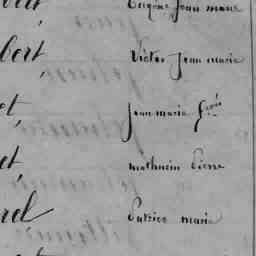 Eugène Jean marie
bert, Victor Jean marie
et, Jean marie
et, mathurin Pierre
rel Patrice marie